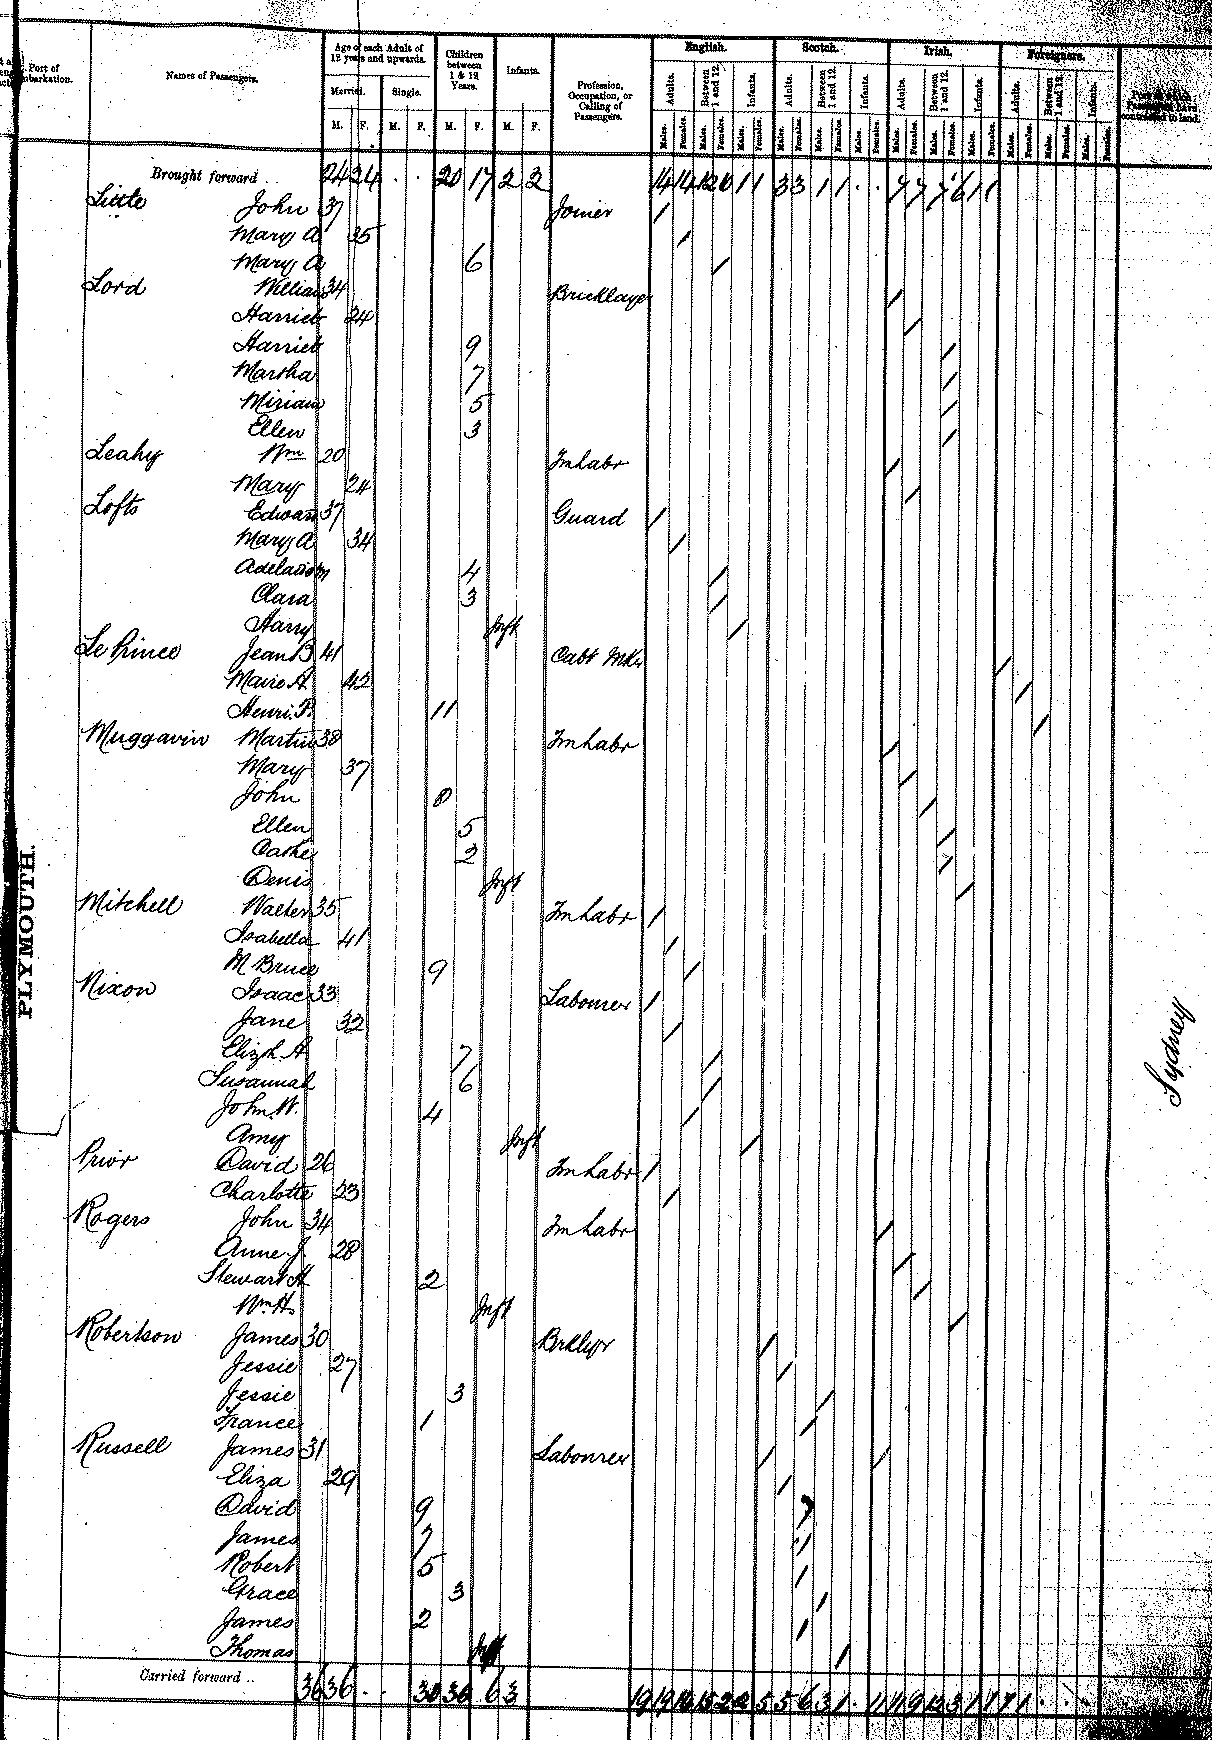 Port of
Names of Passengers.
Age of each Adult of 12 years and upwards.
Married. Single.
M. F. M. F.
Children between 1 & 12 Years.
M. F.
Infants.
M. F.
Profession, Occupation, or Calling of Passengers.
English. Scotch. Irish. Foreigners.
Adults. Between 1 and 12. Infants. Adults. Between 1 and 12. Infants. Adults. Between 1 and 12. Infants. Adults. Between 1 and 12. Infants.
Males. Females. Males. Females. Males. Females. Males. Females. Males. Females. Males. Females. Males. Females. Males. Females. Males. Females. Males. Females. Males. Females. Males. Females.
Brought forward 24 24 . . 20 17 2 2 14 14 1 1 3 3 1 1 . . 7 7 7 6 1 1
John 37 Joiner /
Mary A 35 /
Mary A 6 /
Lord William 34 Bricklayer /
Harriet 24 /
Harriet 9 /
Martha 7 /
Miriam 5 /
Ellen 3 /
Leahy Wm 20 Fmlabr /
Mary 24 /
Lofts Edward 37 Guard /
Mary A 34 /
4 /
Clara 3 /
Harry Inft /
Le Prince Jean B 41 Cabt Mkr /
Marie A 42 /
Henri P. 11 /
Muggavin Martin 38 Fmlabr /
Mary 37 /
John 8 /
Ellen 5 /
Cathe 2 /
Denis Inft /
Mitchell Walter 35 Fmlabr /
Isabella 41 /
M Bruce 9 /
Nixon Isaac 33 Labourer /
Jane 32 /
Elizh A 7 /
Susannah 6 /
John W. 4 /
Amy Inft /
Prior David 26 Fmlabr /
Charlotte 23 /
Rogers John 34 Fmlabr /
Anne J. 28 /
Stewart A 2 /
Wm H. Inft /
Robertson James 30 Brklyr /
Jessie 27 /
Jessie 3 /
France 1 /
Russell James 31 Labourer / /
Eliza 29 /
David 9 /
James 7 /
Robert 5 /
Grace 3 /
James 2 /
Thomas Inft /
Carried forward .. 36 36 . . 30 36 6 3 19 19
PLYMOUTH.
Sydney